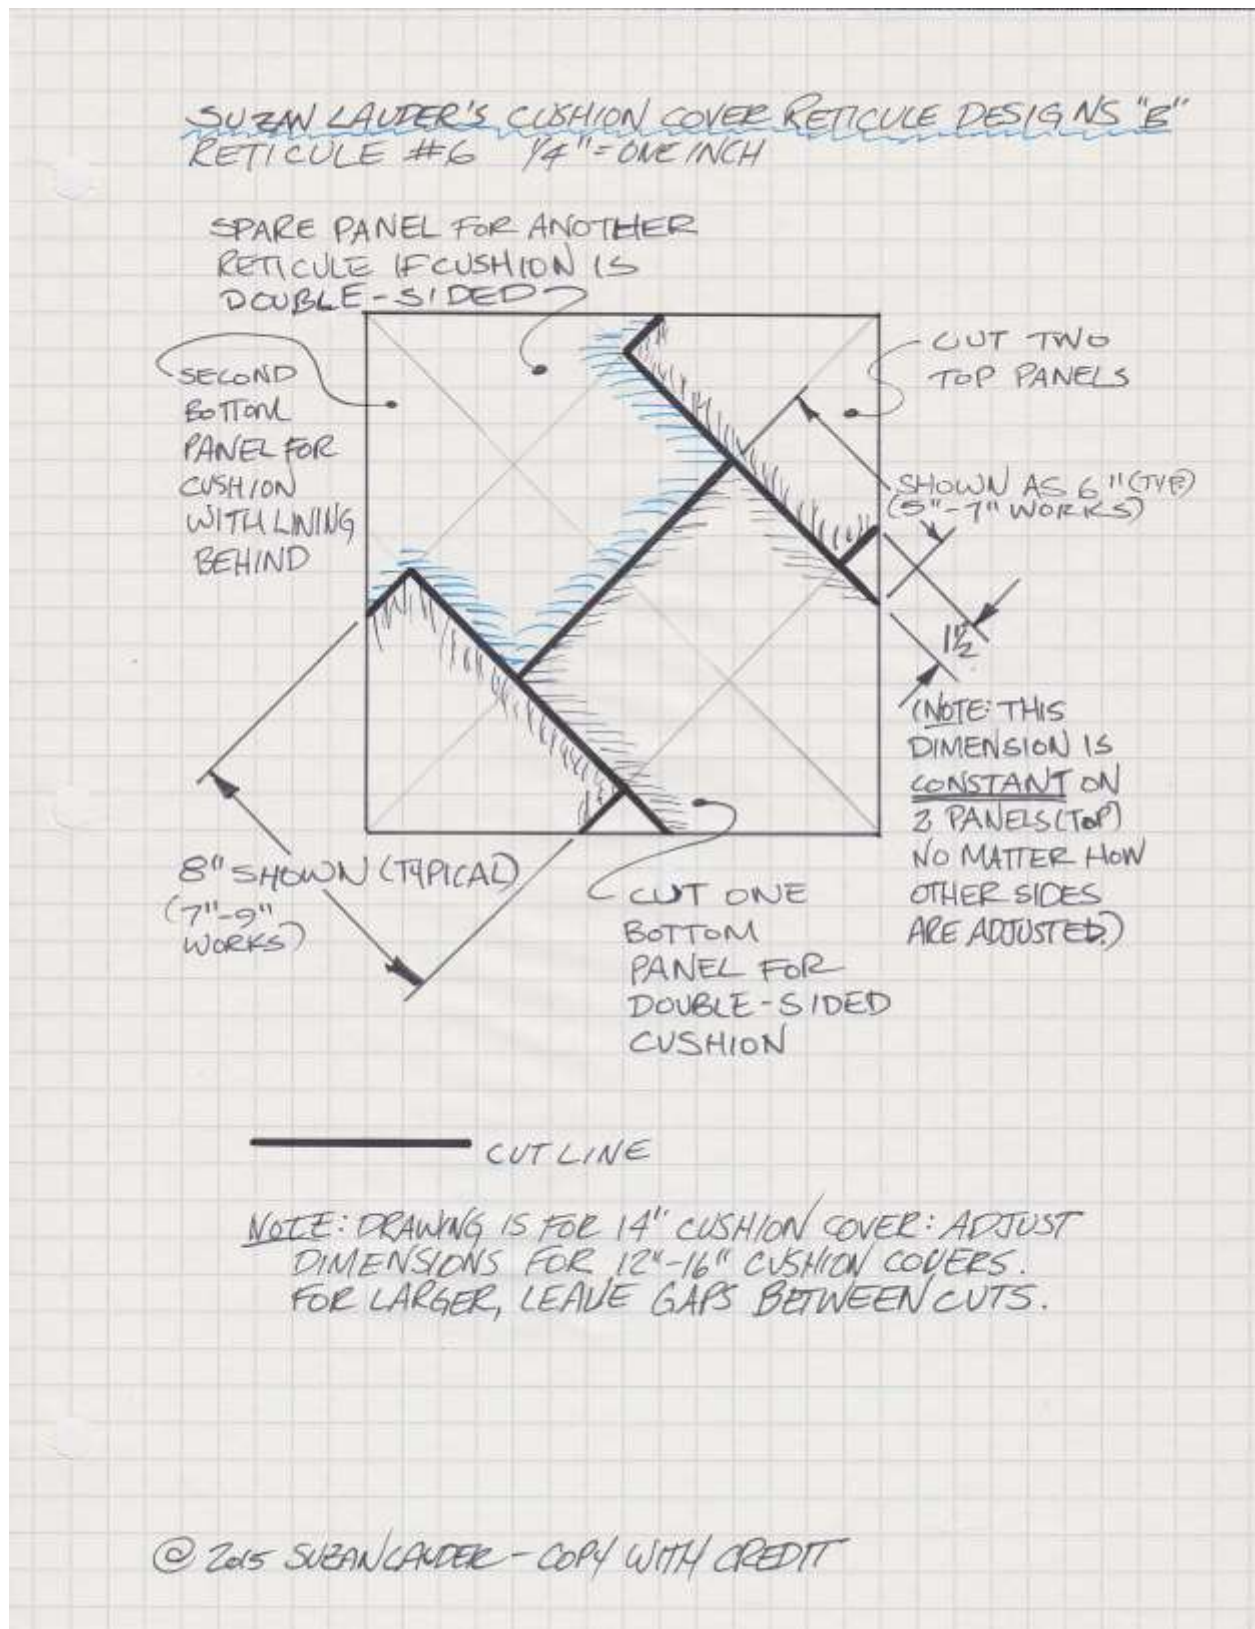 SUZAN LAUDER'S CUSHION COVER RETICULE DESIGNS "B"
RETICULE #6 1/4" = ONE INCH
SPARE PANEL FOR ANOTHER
RETICULE IF CUSHION IS
DOUBLE-SIDED
SECOND
BOTTOM
PANEL FOR
CUSHION
WITH LINING
BEHIND
CUT TWO
TOP PANELS
SHOWN AS 6" (TYP.)
(5"-7" WORKS)
1 1/2
(NOTE: THIS
DIMENSION IS
CONSTANT ON
2 PANELS (TOP)
NO MATTER HOW
OTHER SIDES
ARE ADJUSTED.)
8" SHOWN (TYPICAL)
(7"-9"
WORKS)
CUT ONE
BOTTOM
PANEL FOR
DOUBLE-SIDED
CUSHION
CUT LINE
NOTE: DRAWING IS FOR 14" CUSHION COVER: ADJUST
DIMENSIONS FOR 12"-16" CUSHION COVERS.
FOR LARGER, LEAVE GAPS BETWEEN CUTS.
© 2015 SUZAN LAUDER - COPY WITH CREDIT